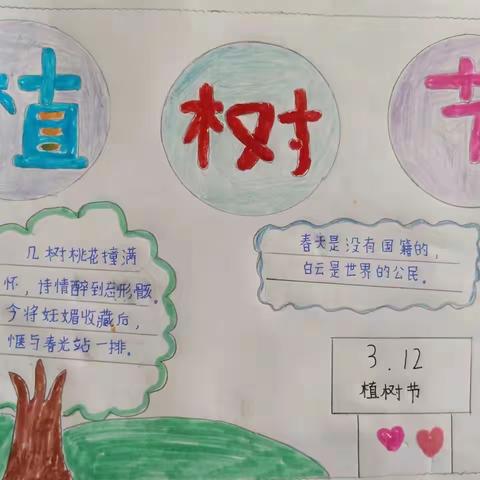 植树节
几树桃花撞满
怀，诗情醉到忘形骸。
今将妩媚收藏后，
惬与春光站一排。
春天是没有国籍的，
白云是世界的公民。
3.12
植树节